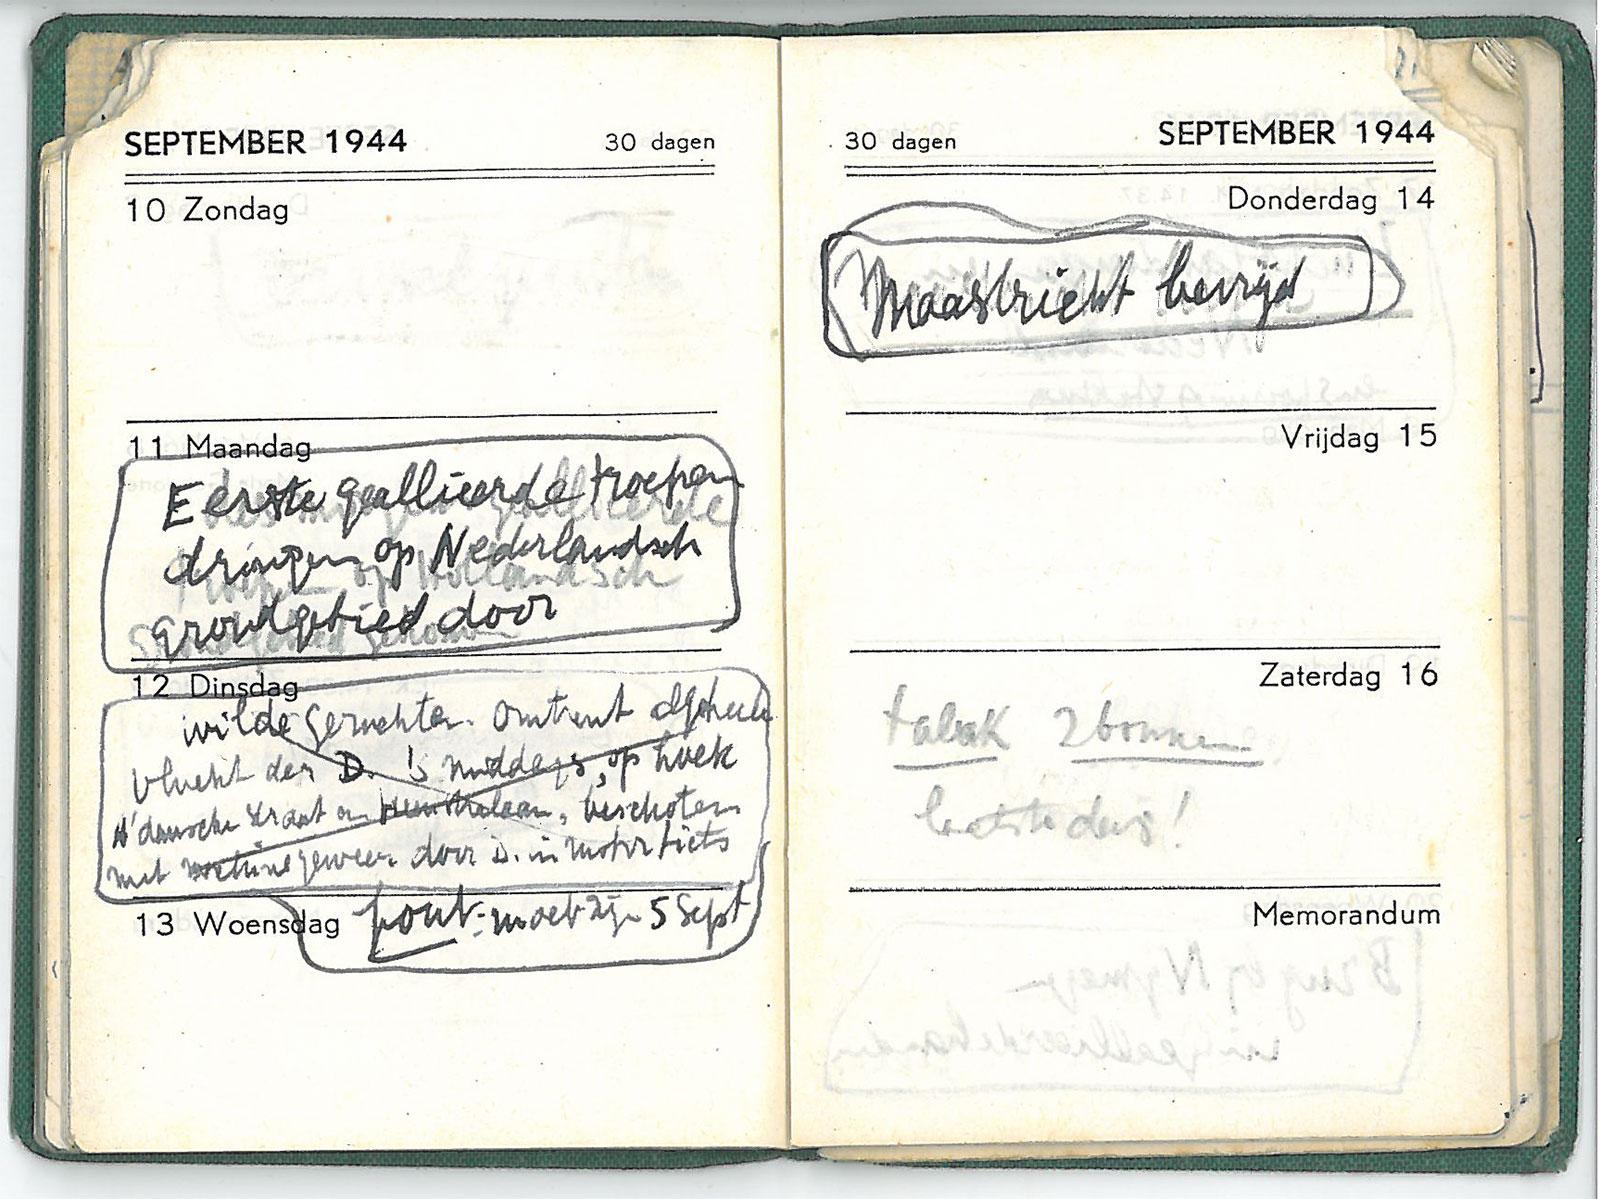 SEPTEMBER 1944 30 dagen
10 Zondag
11 Maandag
Eerste geallieerde troepen
dringen op Nederlandsch
grondgebied door
12 Dinsdag
wilde geruchten omtrent algeheele
vlucht der D. 's middags op hoek
A'damsche straat en beschoten
met machinegeweer door D. in motorfiets
13 Woensdag fout: moet zijn 5 Sept
30 dagen SEPTEMBER 1944
Donderdag 14
Maastricht bevrijd
Vrijdag 15
Zaterdag 16
tabak 2 bonnen
laatste dag!
Memorandum